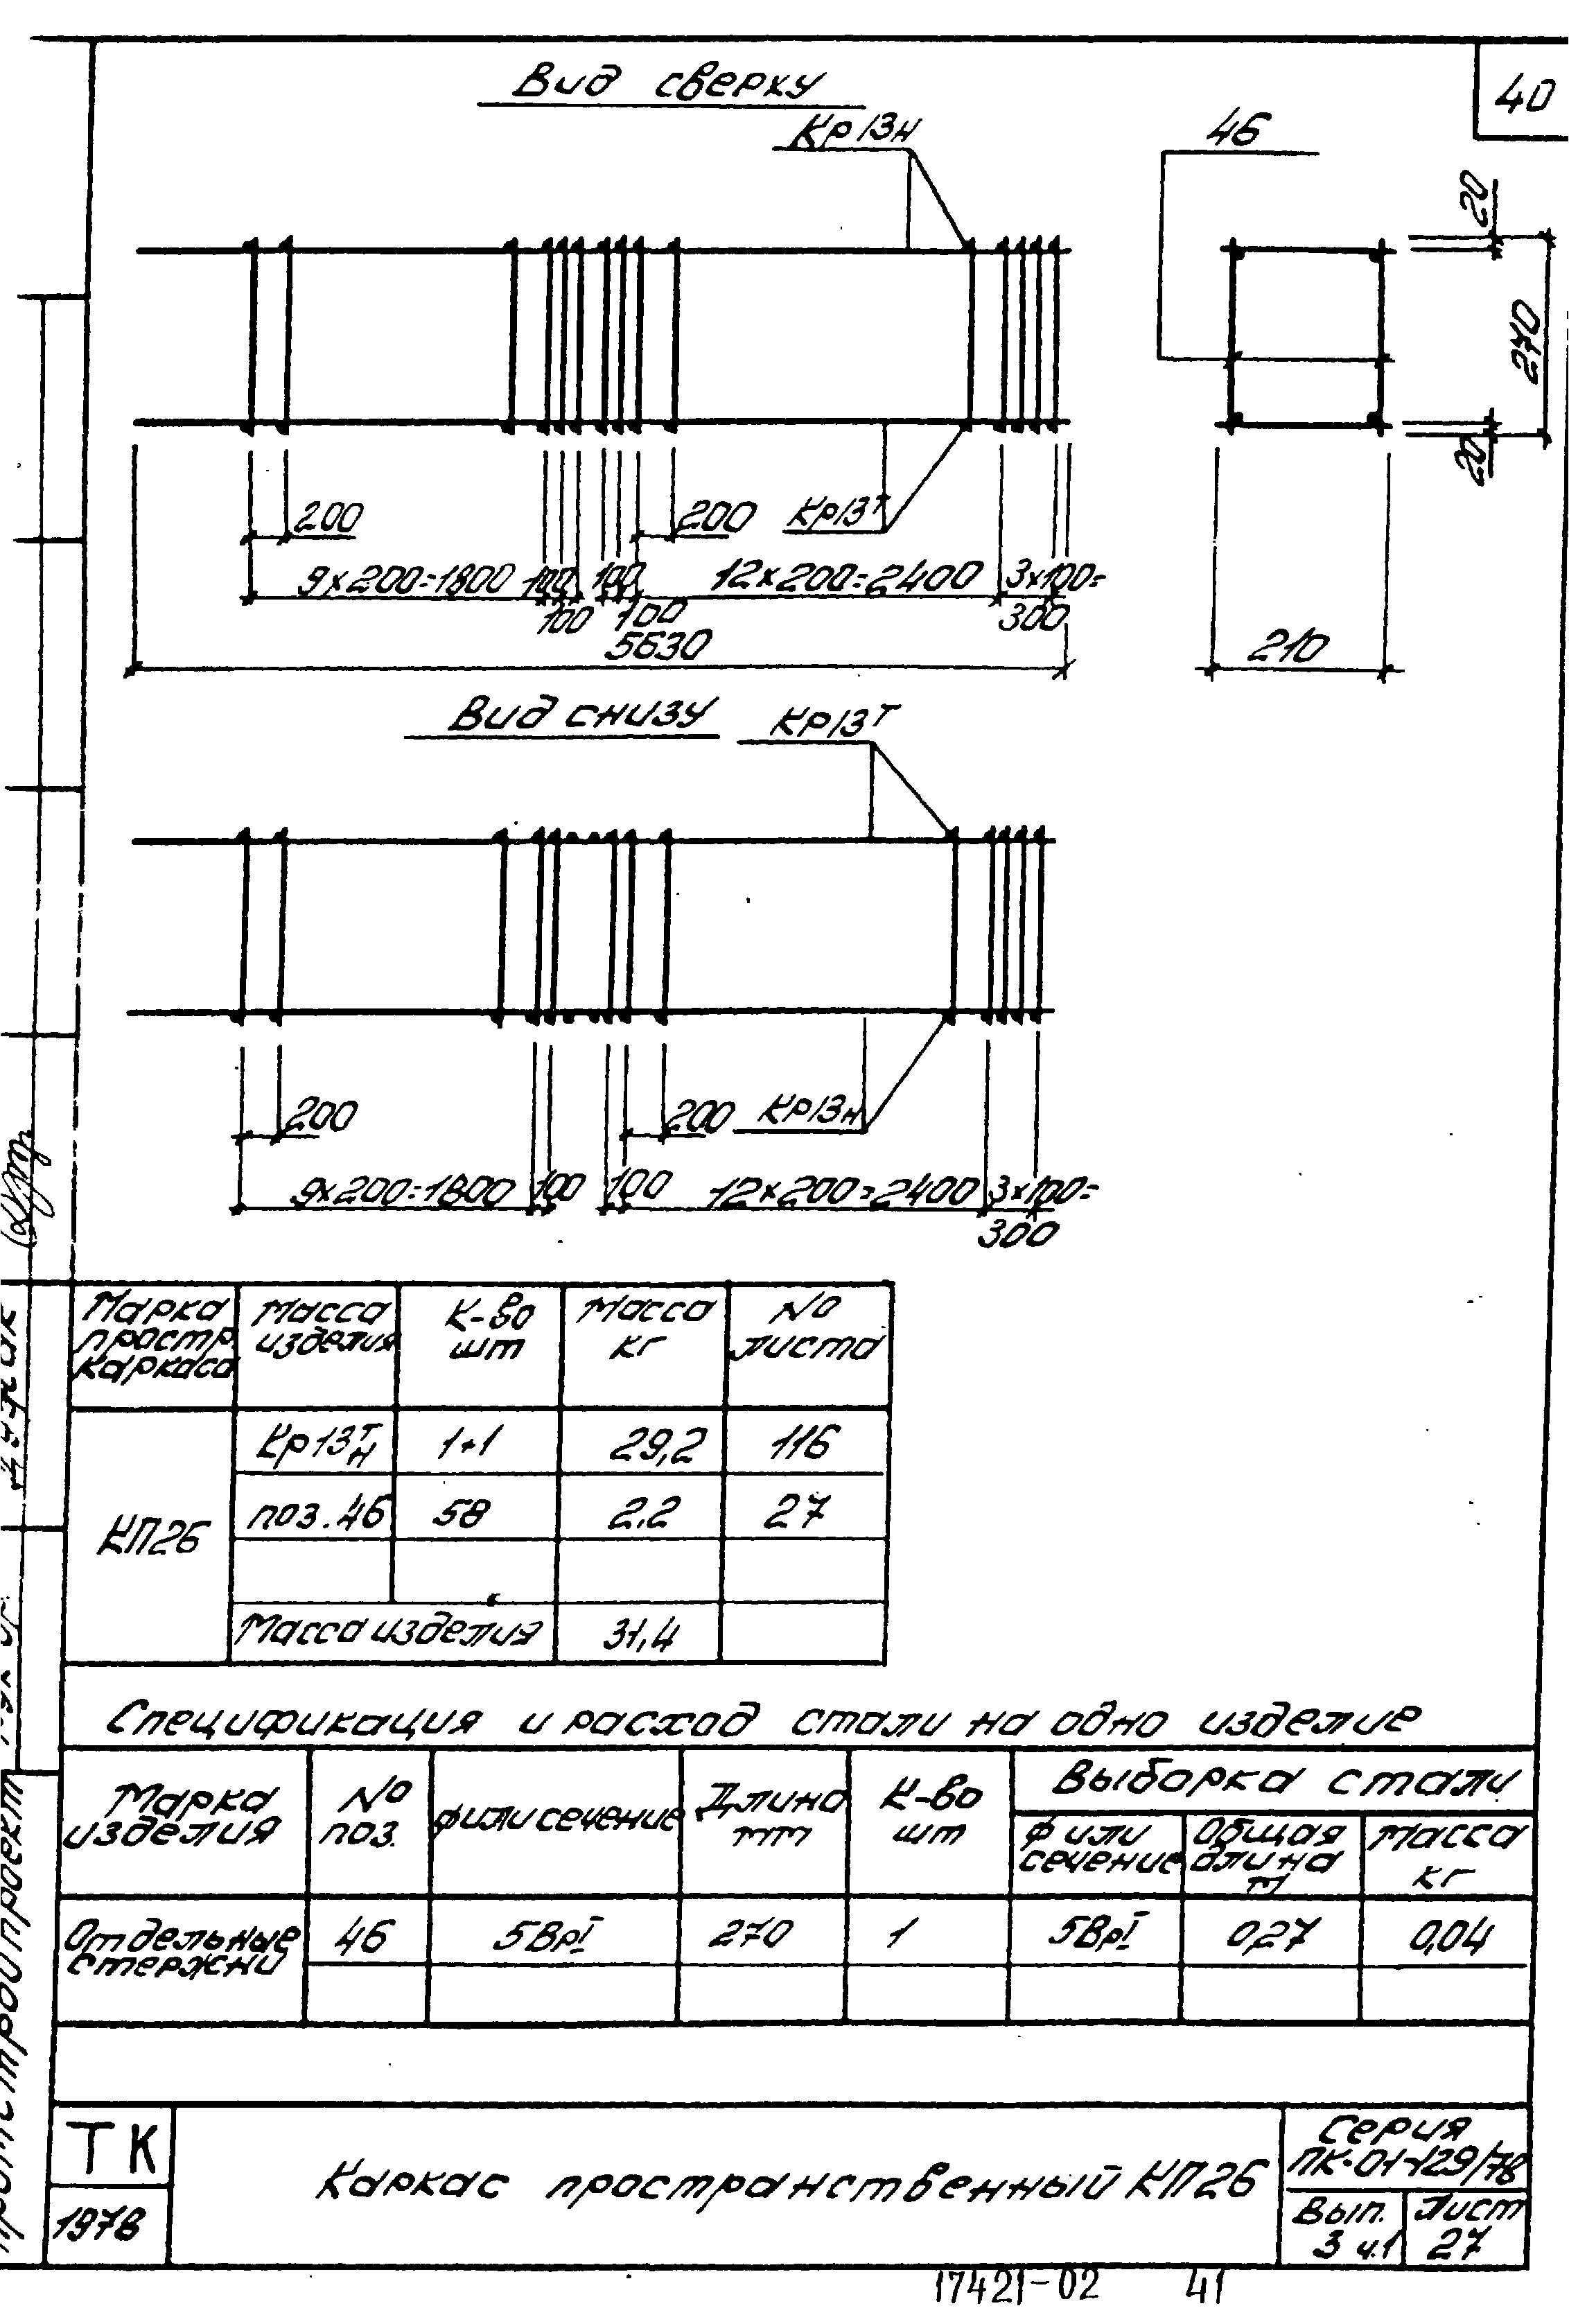 40
Вид сверху
Кр13н
46
20
270
20
200
200
Кр13т
9×200=1800 100 100 12×200=2400 3×100=
100 100 300
5630
210
Вид снизу
Кр13т
200
200
Кр13н
9×200=1800 100 100 12×200=2400 3×100=
300
Марка простр. каркаса
Масса изделия
К-во шт
Масса кг
№ листа
КП26
Кр13т/н 1+1 29,2 116
поз.46 58 2,2 27
Масса изделия 31,4
Спецификация и расход стали на одно изделие
Марка изделия
№ поз.
ф или сечение
Длина мм
К-во шт
Выборка стали
ф или сечение
Общая длина м
Масса кг
Отдельные стержни
46 5ВрI 270 1 5ВрI 0,27 0,04
ТК
1978
Каркас пространственный КП26
Серия
ПК-01-129/78
Вып.
3 ч.1
Лист
27
17421-02 41